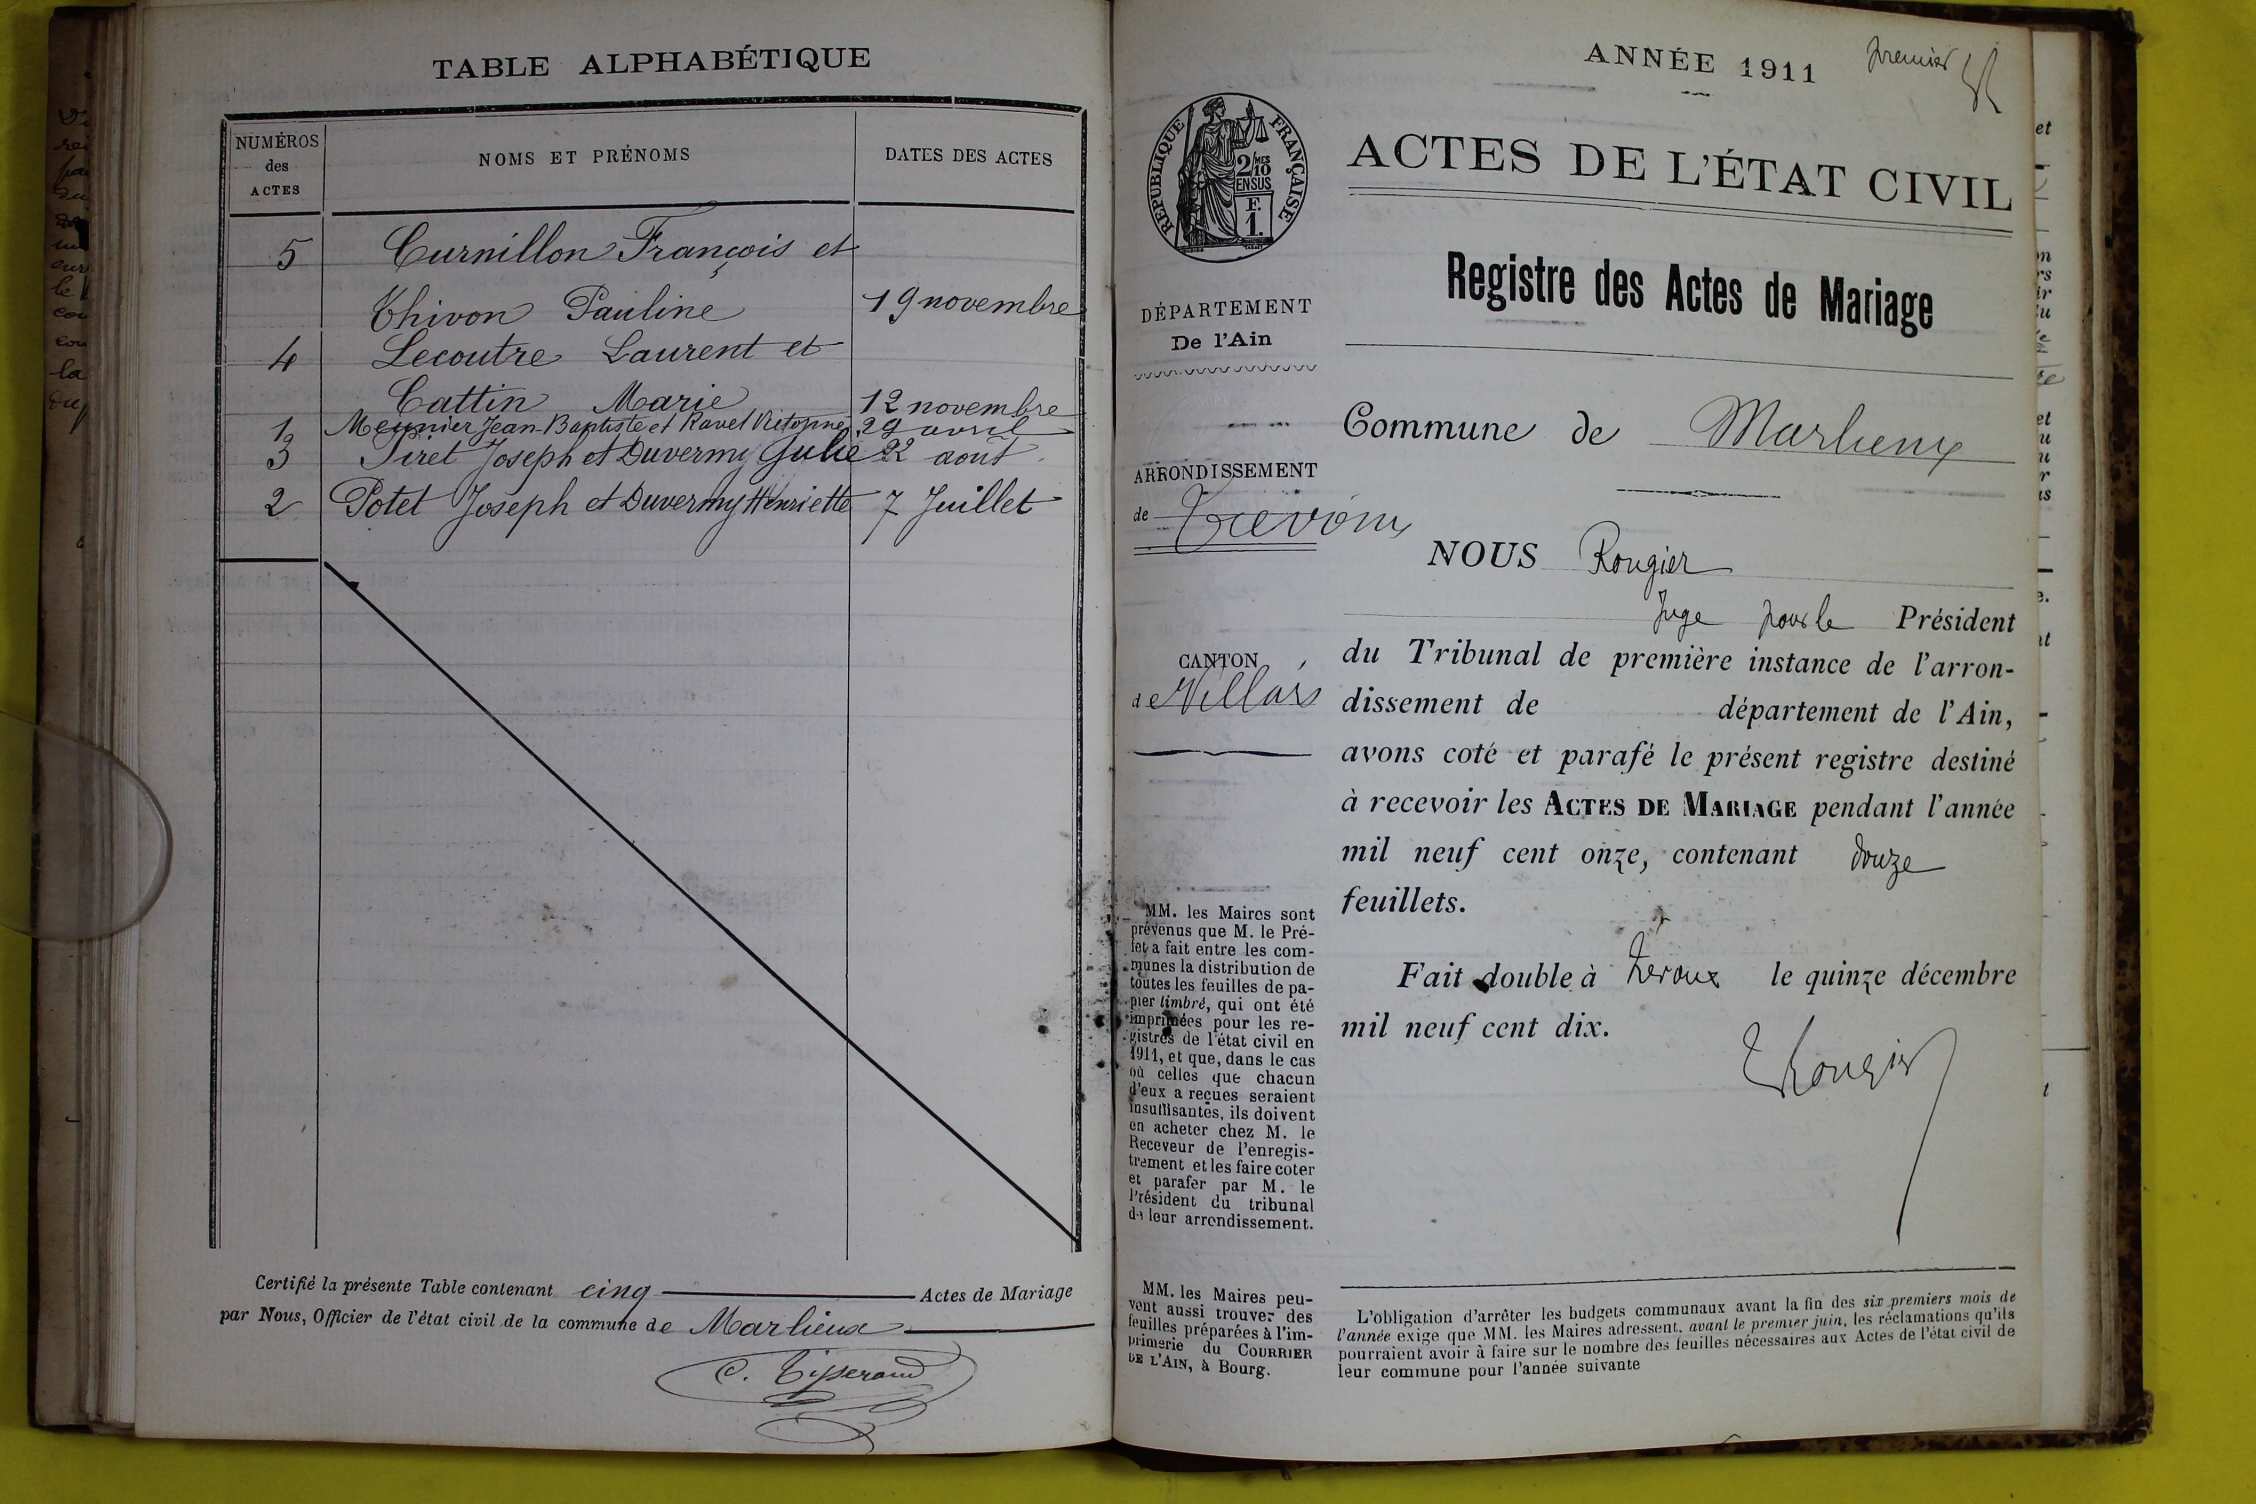 TABLE ALPHABÉTIQUE
NUMÉROS des ACTES
NOMS ET PRÉNOMS
DATES DES ACTES
5 Curnillon François et
Thivon Pauline 19 novembre
4 Lecoutre Laurent et
Cattin Marie 12 novembre
1 Meunier Jean-Baptiste et Ravel Victorine 29 avril
3 Piret Joseph et Duvermy Julie 22 aout
2 Potet Joseph et Duvermy Henriette 7 Juillet
Certifié la présente Table contenant cinq Actes de Mariage
par Nous, Officier de l'état civil de la commune de Marlieux
C. Tisserand
ANNÉE 1911
premier
RÉPUBLIQUE FRANÇAISE
2/10 MES
EN SUS
F.
1.
ACTES DE L'ÉTAT CIVIL
Registre des Actes de Mariage
DÉPARTEMENT
De l'Ain
Commune de Marlieux
ARRONDISSEMENT
de Trévoux
CANTON
de Villars
NOUS Rougier
Juge pour le Président
du Tribunal de première instance de l'arron-
dissement de département de l'Ain,
avons coté et parafé le présent registre destiné
à recevoir les ACTES DE MARIAGE pendant l'année
mil neuf cent onze, contenant douze
feuillets.
Fait double à Trévoux le quinze décembre
mil neuf cent dix.
Rougier
MM. les Maires sont
prévenus que M. le Pré-
fet a fait entre les com-
munes la distribution de
toutes les feuilles de pa-
pier timbré, qui ont été
imprimées pour les re-
gistres de l'état civil en
1911, et que, dans le cas
où celles que chacun
d'eux a reçues seraient
insuffisantes, ils doivent
en acheter chez M. le
Receveur de l'enregis-
trement et les faire coter
et parafer par M. le
Président du tribunal
de leur arrondissement.
MM. les Maires peu-
vent aussi trouver des
feuilles préparées à l'im-
primerie du COURRIER
DE L'AIN, à Bourg.
L'obligation d'arrêter les budgets communaux avant la fin des six premiers mois de
l'année exige que MM. les Maires adressent, avant le premier juin, les réclamations qu'ils
pourraient avoir à faire sur le nombre des feuilles nécessaires aux Actes de l'état civil de
leur commune pour l'année suivante